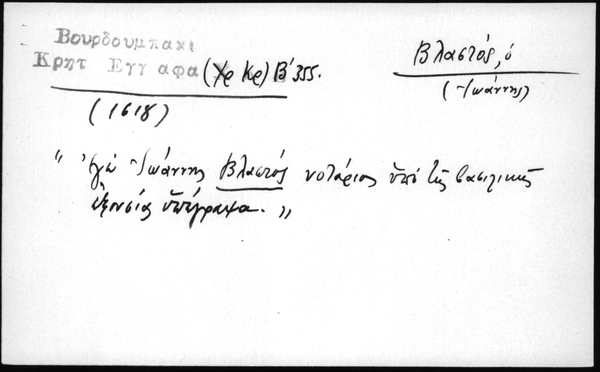 Βουρδουμπακι
Κρητ Εγγ αφα (Χρ Κρ) Β' 355.
Βλαστός, ὁ
(Ἰωάννης)
(1618)
"Ἐγὼ Ἰωάννης Βλαστός νοτάριος ὑπὸ τῆς βασιλικῆς
ἐξουσίας ὑπέγραψα."